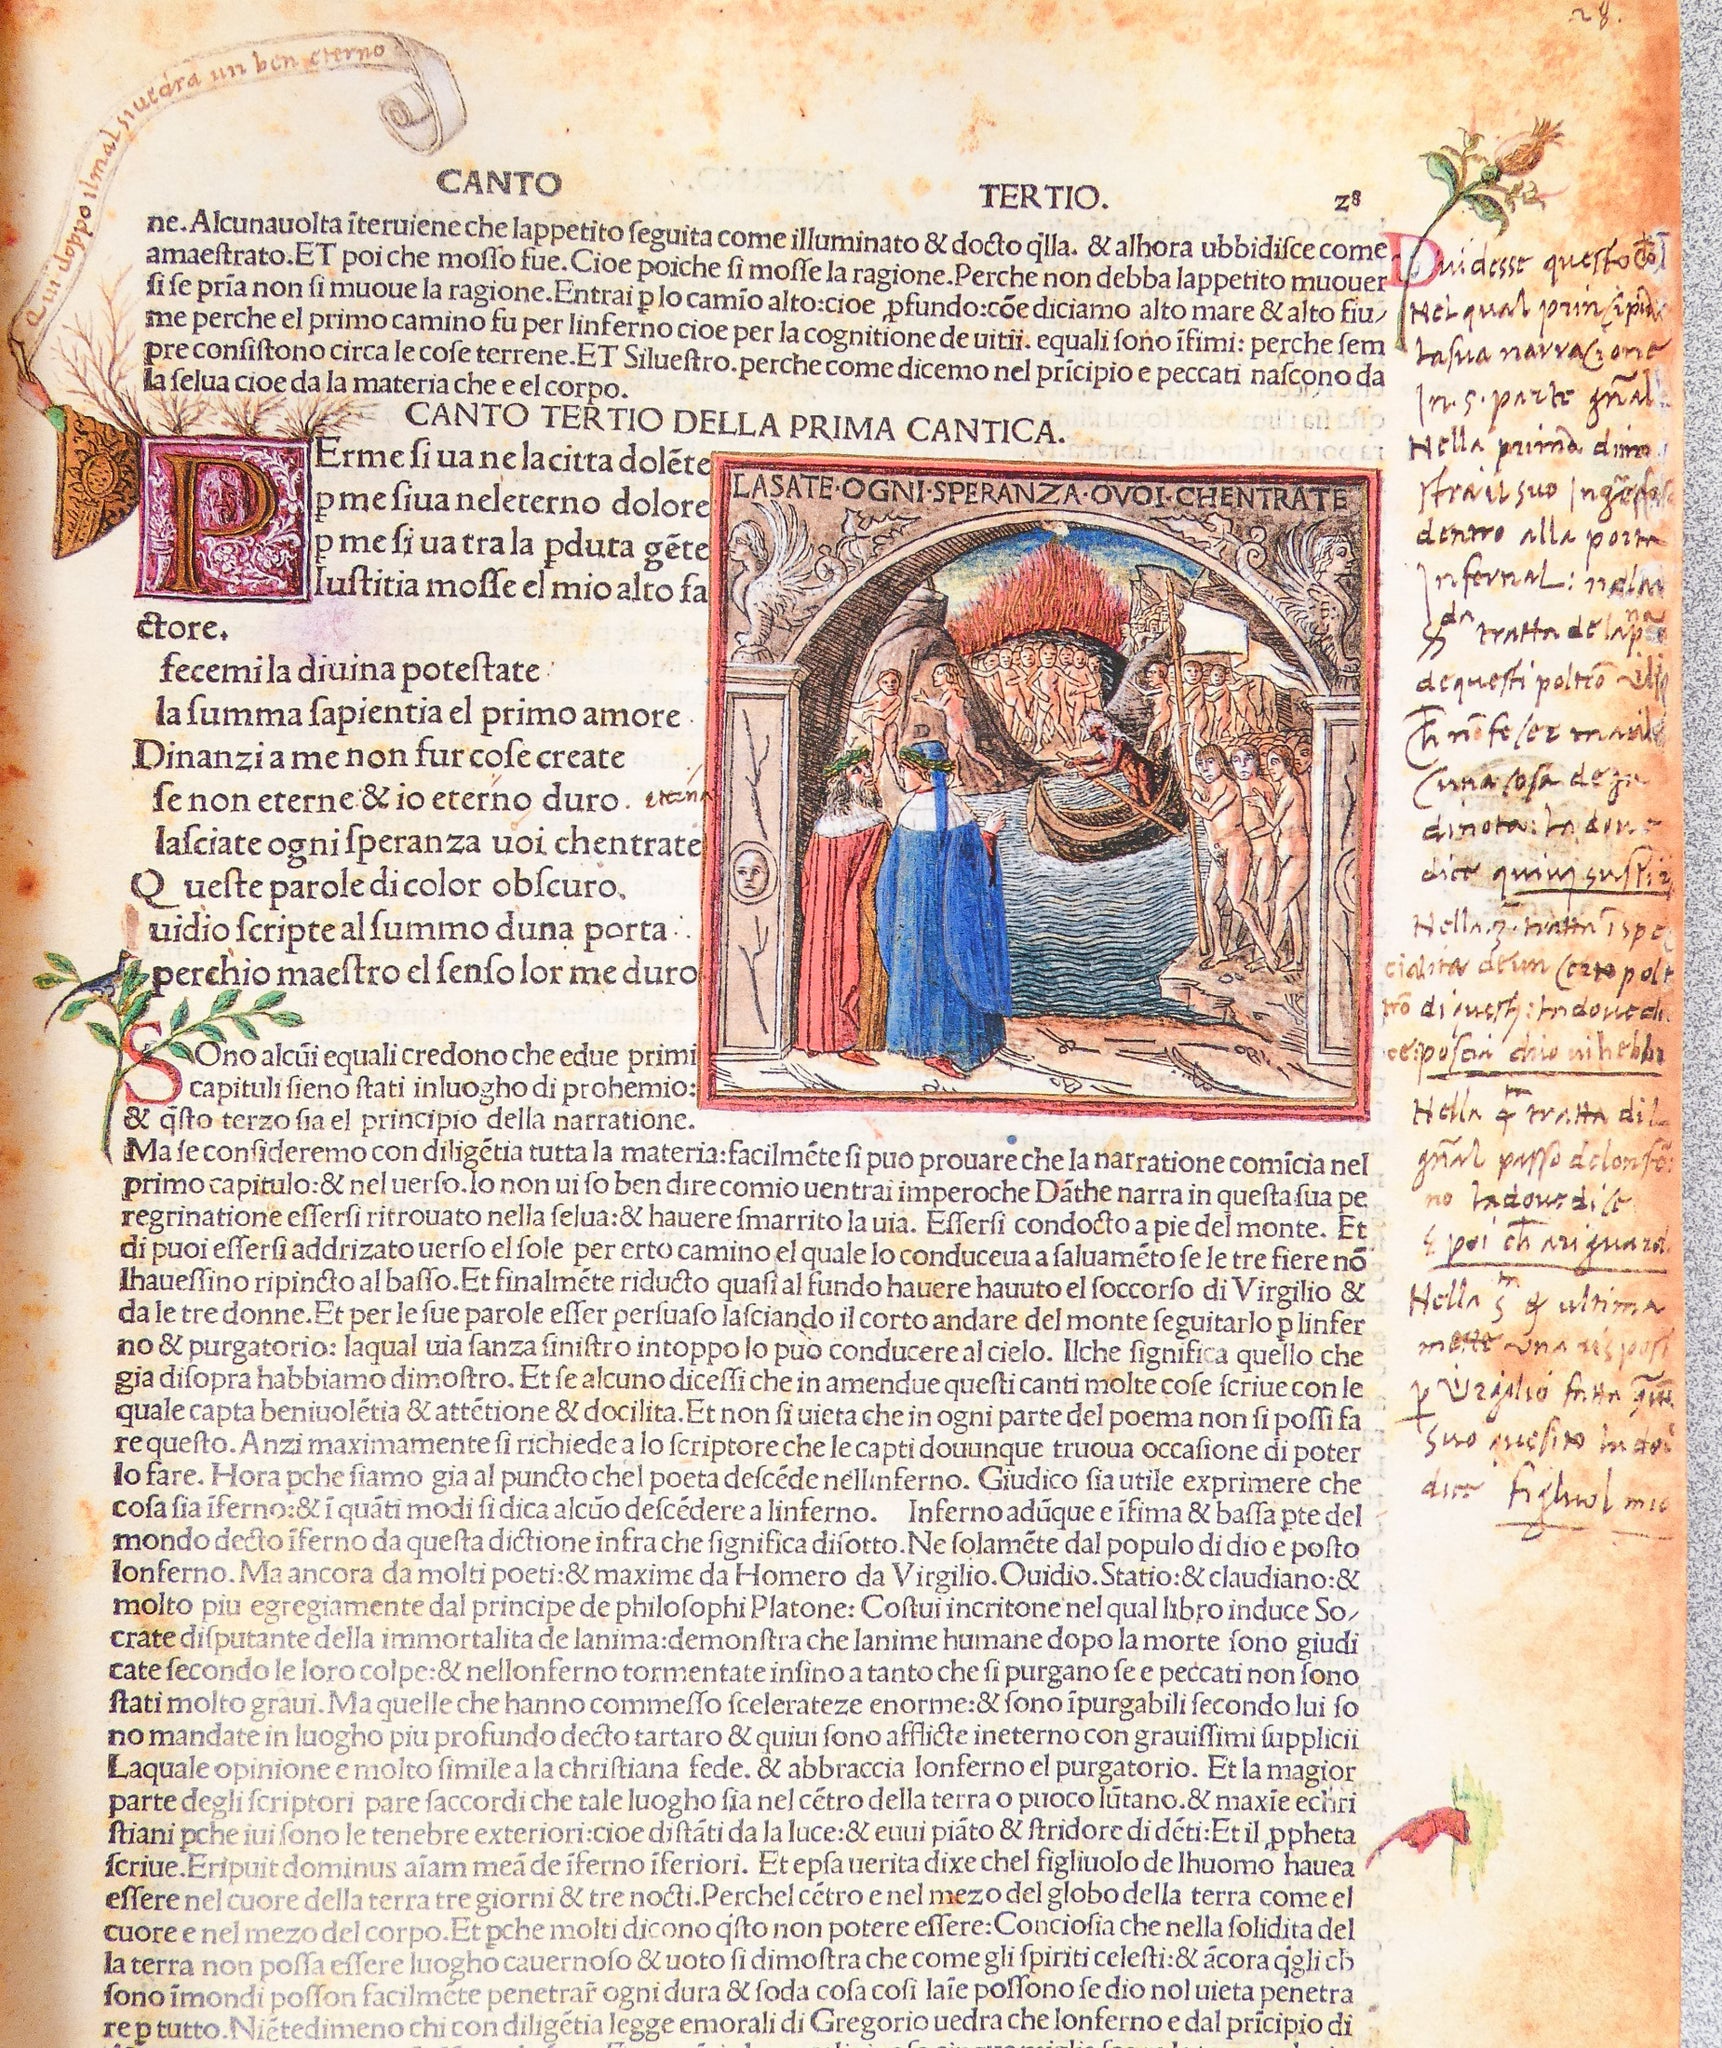 28.
Qui doppo il mal si uedra un ben eterno
CANTO TERTIO. z8
ne. Alcunauolta ĩteruiene che lappetito ſeguita come illuminato & docto q̃lla. & alhora ubbidiſce come
amaeſtrato. ET poi che moſſo fue. Cioe poiche ſi moſſe la ragione. Perche non debba lappetito muouer
ſi ſe pria non ſi muoue la ragione. Entrai ꝑ lo camĩo alto: cioe ꝓfundo: cõe diciamo alto mare & alto fiu/
me perche el primo camino fu per linferno cioe per la cognitione de uitii. equali ſono ĩfimi: perche ſem
pre conſiſtono circa le coſe terrene. ET Silueſtro. perche come dicemo nel prĩcipio e peccati naſcono da
la ſelua cioe da la materia che e el corpo.
CANTO TERTIO DELLA PRIMA CANTICA.
PErme ſi ua ne la citta dolẽte
ꝑ me ſiua neleterno dolore
ꝑ me ſi ua tra la ꝑduta gẽte
Iuſtitia moſſe el mio alto fa
ctore.
fecemi la diuina poteſtate
la ſumma ſapientia el primo amore
Dinanzi a me non fur coſe create
ſe non eterne & io eterno duro. eterna
laſciate ogni ſperanza uoi chentrate
Queſte parole di color obſcuro.
uidio ſcripte al ſummo duna porta
perchio maeſtro el ſenſo lor me duro
LASATE·OGNI·SPERANZA·OVOI·CHENTRATE
D
SOno alcũi equali credono che e due primi
capituli ſieno ſtati in luogho di prohemio:
& q̃ſto terzo ſia el principio della narratione.
Ma ſe conſideremo con diligẽtia tutta la materia: facilmẽte ſi puo prouare che la narratione comĩcia nel
primo capitulo: & nel uerſo. Io non ui ſo ben dire comio uentrai imperoche Dãthe narra in queſta ſua pe
regrinatione eſſerſi ritrouato nella ſelua: & hauere ſmarrito la uia. Eſſerſi condocto a pie del monte. Et
di puoi eſſerſi addrizato uerſo el ſole per erto camino el quale lo conduceua a ſaluamẽto ſe le tre fiere nõ
lhaueſſino ripincto al baſſo. Et finalmẽte riducto quaſi al fundo hauere hauuto el ſoccorſo di Virgilio &
da le tre donne. Et per le ſue parole eſſer perſuaſo laſciando il corto andare del monte ſeguitarlo ꝑ linfer
no & purgatorio: laqual uia ſanza ſiniſtro intoppo lo può conducere al cielo. Ilche ſignifica quello che
gia diſopra habbiamo dimoſtro. Et ſe alcuno diceſſi che in amendue queſti canti molte coſe ſcriue con le
quale capta beniuolẽtia & attẽtione & docilita. Et non ſi uieta che in ogni parte del poema non ſi poſſi fa
re queſto. Anzi maximamente ſi richiede a lo ſcriptore che le capti douunque truoua occaſione di poter
lo fare. Hora ꝑche ſiamo gia al puncto chel poeta deſcẽde nellinferno. Giudico ſia utile exprimere che
coſa ſia ĩferno: & ĩ quãti modi ſi dica alcũo deſcẽdere a linferno. Inferno adũque e ĩfima & baſſa ꝑte del
mondo decto ĩferno da queſta dictione infra che ſignifica diſotto. Ne ſolamẽte dal populo di dio e poſto
lonferno. Ma ancora da molti poeti: & maxime da Homero da Virgilio. Ouidio. Statio: & claudiano: &
molto piu egregiamente dal principe de philoſophi Platone: Coſtui incritone nel qual libro induce So/
crate diſputante della immortalita de lanima: demonſtra che lanime humane dopo la morte ſono giudi
cate ſecondo le loro colpe: & nellonferno tormentate inſino a tanto che ſi purgano ſe e peccati non ſono
ſtati molto graui. Ma quelle che hanno commeſſo ſcelerateze enorme: & ſono ĩpurgabili ſecondo lui ſo
no mandate in luogho piu profundo decto tartaro & quiui ſono afflicte ineterno con grauiſſimi ſupplicii
Laquale opinione e molto ſimile a la chriſtiana fede. & abbraccia lonferno el purgatorio. Et la magior
parte degli ſcriptori pare ſaccordi che tale luogho ſia nel cẽtro della terra o puoco lũtano. & maxĩe echri
ſtiani ꝑche iui ſono le tenebre exteriori: cioe diſtãti da la luce: & euui piãto & ſtridore di dẽti: Et il ꝓpheta
ſcriue. Eripuit dominus aĩam meã de ĩferno ĩferiori. Et epſa uerita dixe chel figliuolo de lhuomo hauea
eſſere nel cuore della terra tre giorni & tre nocti. Perchel cẽtro e nel mezo del globo della terra come el
cuore e nel mezo del corpo. Et ꝑche molti dicono q̃ſto non potere eſſere: Concioſia che nella ſolidita del
la terra non poſſa eſſere luogho cauernoſo & uoto ſi dimoſtra che come gli ſpiriti celeſti: & ãcora q̃gli ch
ſono ĩmondi poſſon facilmẽte penetrar̃ ogni dura & ſoda coſa coſi laĩe poſſono ſe dio nol uieta penetra
re ꝑ tutto. Niẽtedimeno chi con diligẽtia legge emorali di Gregorio uedra che lonferno e dal prĩcipio di
Diuideſſe queſto
Nel qual
la ſua narracione
In .5. parte gñal
Nella prima dimo
ſtra il ſuo
dentro alla porta
Infernal: nela
tratta de la
de queſti
una coſa
dinota: la doue
dice quiui ſuſpiri
Nella 3 tratta
cialita de un certo polt
di queſti: la doue di
ce: poſcia chio ui hebbi
Nella tratta dil
gñal paſſo
no la doue dice
E poi ch ariguard
Nella ultima
mette una riſpoſt
ꝑ Virgilio fatta
ſuo queſito la doue
dice figliuol mio